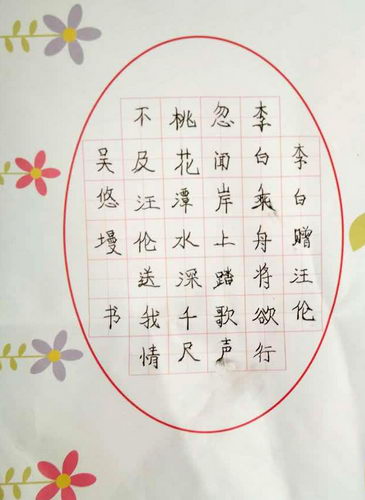 李白赠汪伦
李白乘舟将欲行
忽闻岸上踏歌声
桃花潭水深千尺
不及汪伦送我情
吴悠墁 书